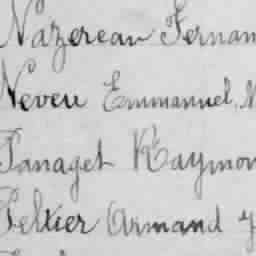 Nazereau Fernan
Neveu Emmanuel, M
Panaget Raymon
Peltier Armand